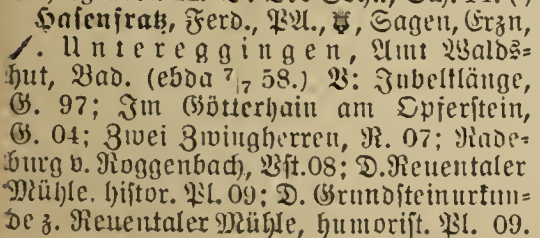 Hasenfratz, Ferd., PA., Sagen, Erzn,
. Untereggingen, Amt Walds-
hut, Bad. (ebda 7/7 58.) V: Jubelklänge,
G. 97; Im Götterhain am Opferstein,
G. 04; Zwei Zwingherren, R. 07; Rade-
burg v. Roggenbach, Vst. 08; D. Reuentaler
Mühle. histor. Pl. 09; D. Grundsteinurkun-
de z. Reuentaler Mühle, humorist. Pl. 09.